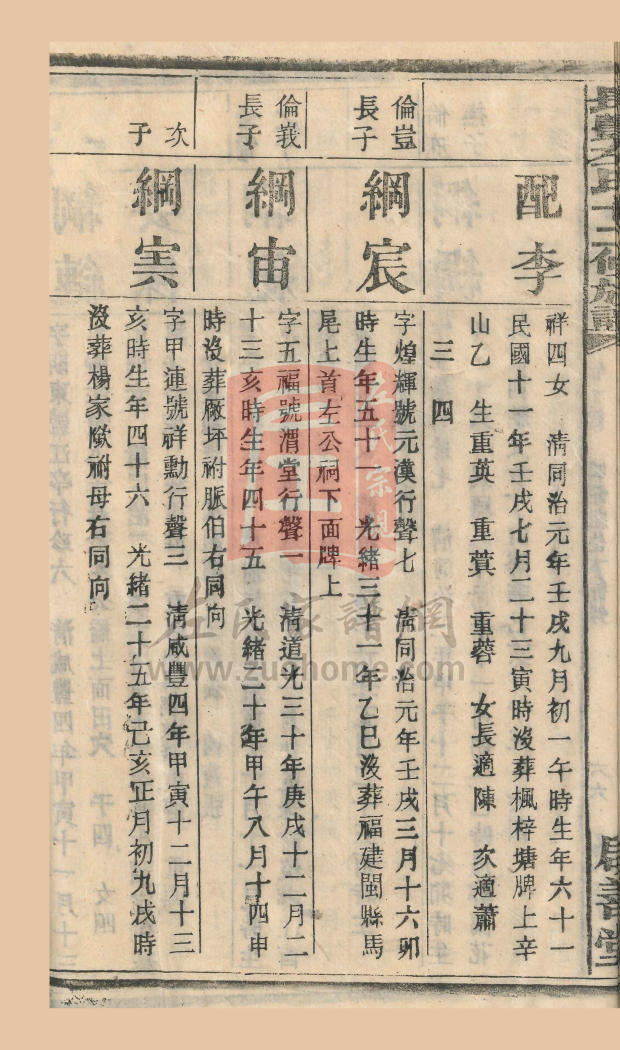 配李
祥四女　清同治元年壬戌九月初一午時生年六十一
民國十一年壬戌七月二十三寅時沒葬楓梓塘牌上辛
山乙　生重英　重蓂　重蓉　女長適陳　次適蕭
三　四
倫豈
長子
綱宸
字煌輝號元漢行聲七　清同治元年壬戌三月十六卯
時生年五十一　光緒三十一年乙巳沒葬福建閩縣馬
尾上首左公祠下面牌上
倫義
長子
綱宙
字五福號渭堂行聲一　清道光三十年庚戌十二月二
十三亥時生年四十五　光緒二十年甲午八月十四申
時沒葬廠坪祔脤伯右同向
次
子
綱寅
字甲蓮號祥勳行聲三　清咸豐四年甲寅十二月十三
亥時生年四十六　光緒二十五年己亥正月初九戌時
沒葬楊家陂祔母右同向
左氏宗親
左氏家譜網
www.zuohome.com